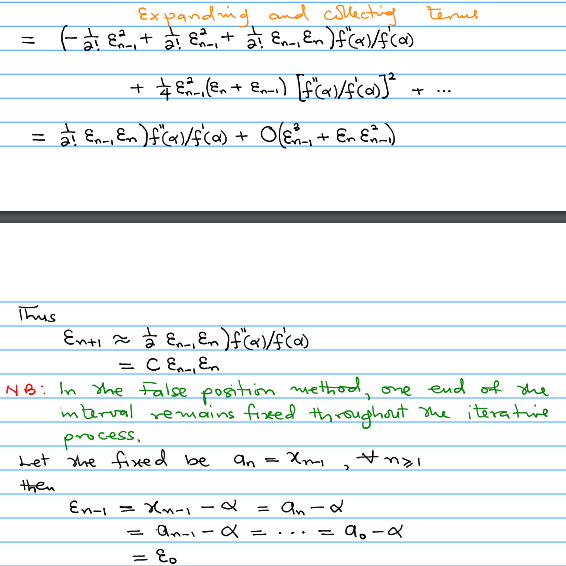 Expanding and collecting terms
= (-1/2! ε²ₙ₋₁ + 1/2! ε²ₙ₋₁ + 1/2! εₙ₋₁ εₙ) f''(α)/f'(α)
+ 1/4 ε²ₙ₋₁ (εₙ + εₙ₋₁) [f''(α)/f'(α)]² + ...
= 1/2! εₙ₋₁ εₙ) f''(α)/f'(α) + O(ε³ₙ₋₁ + εₙ ε²ₙ₋₁)
Thus
εₙ₊₁ ≈ 1/2 εₙ₋₁ εₙ) f''(α)/f'(α)
= C εₙ₋₁ εₙ
NB: In the False position method, one end of the
interval remains fixed throughout the iterative
process.
Let the fixed be aₙ = xₙ₋₁ , ∀ n ≥ 1
then
εₙ₋₁ = xₙ₋₁ - α = aₙ - α
= aₙ₋₁ - α = ... = a₀ - α
= ε₀